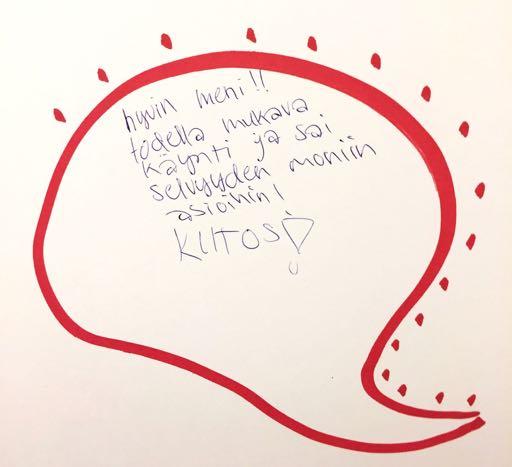 hyvin meni!!
todella mukava
käynti ja sai
selvyyden moniin
asioihin!
KIITOS!